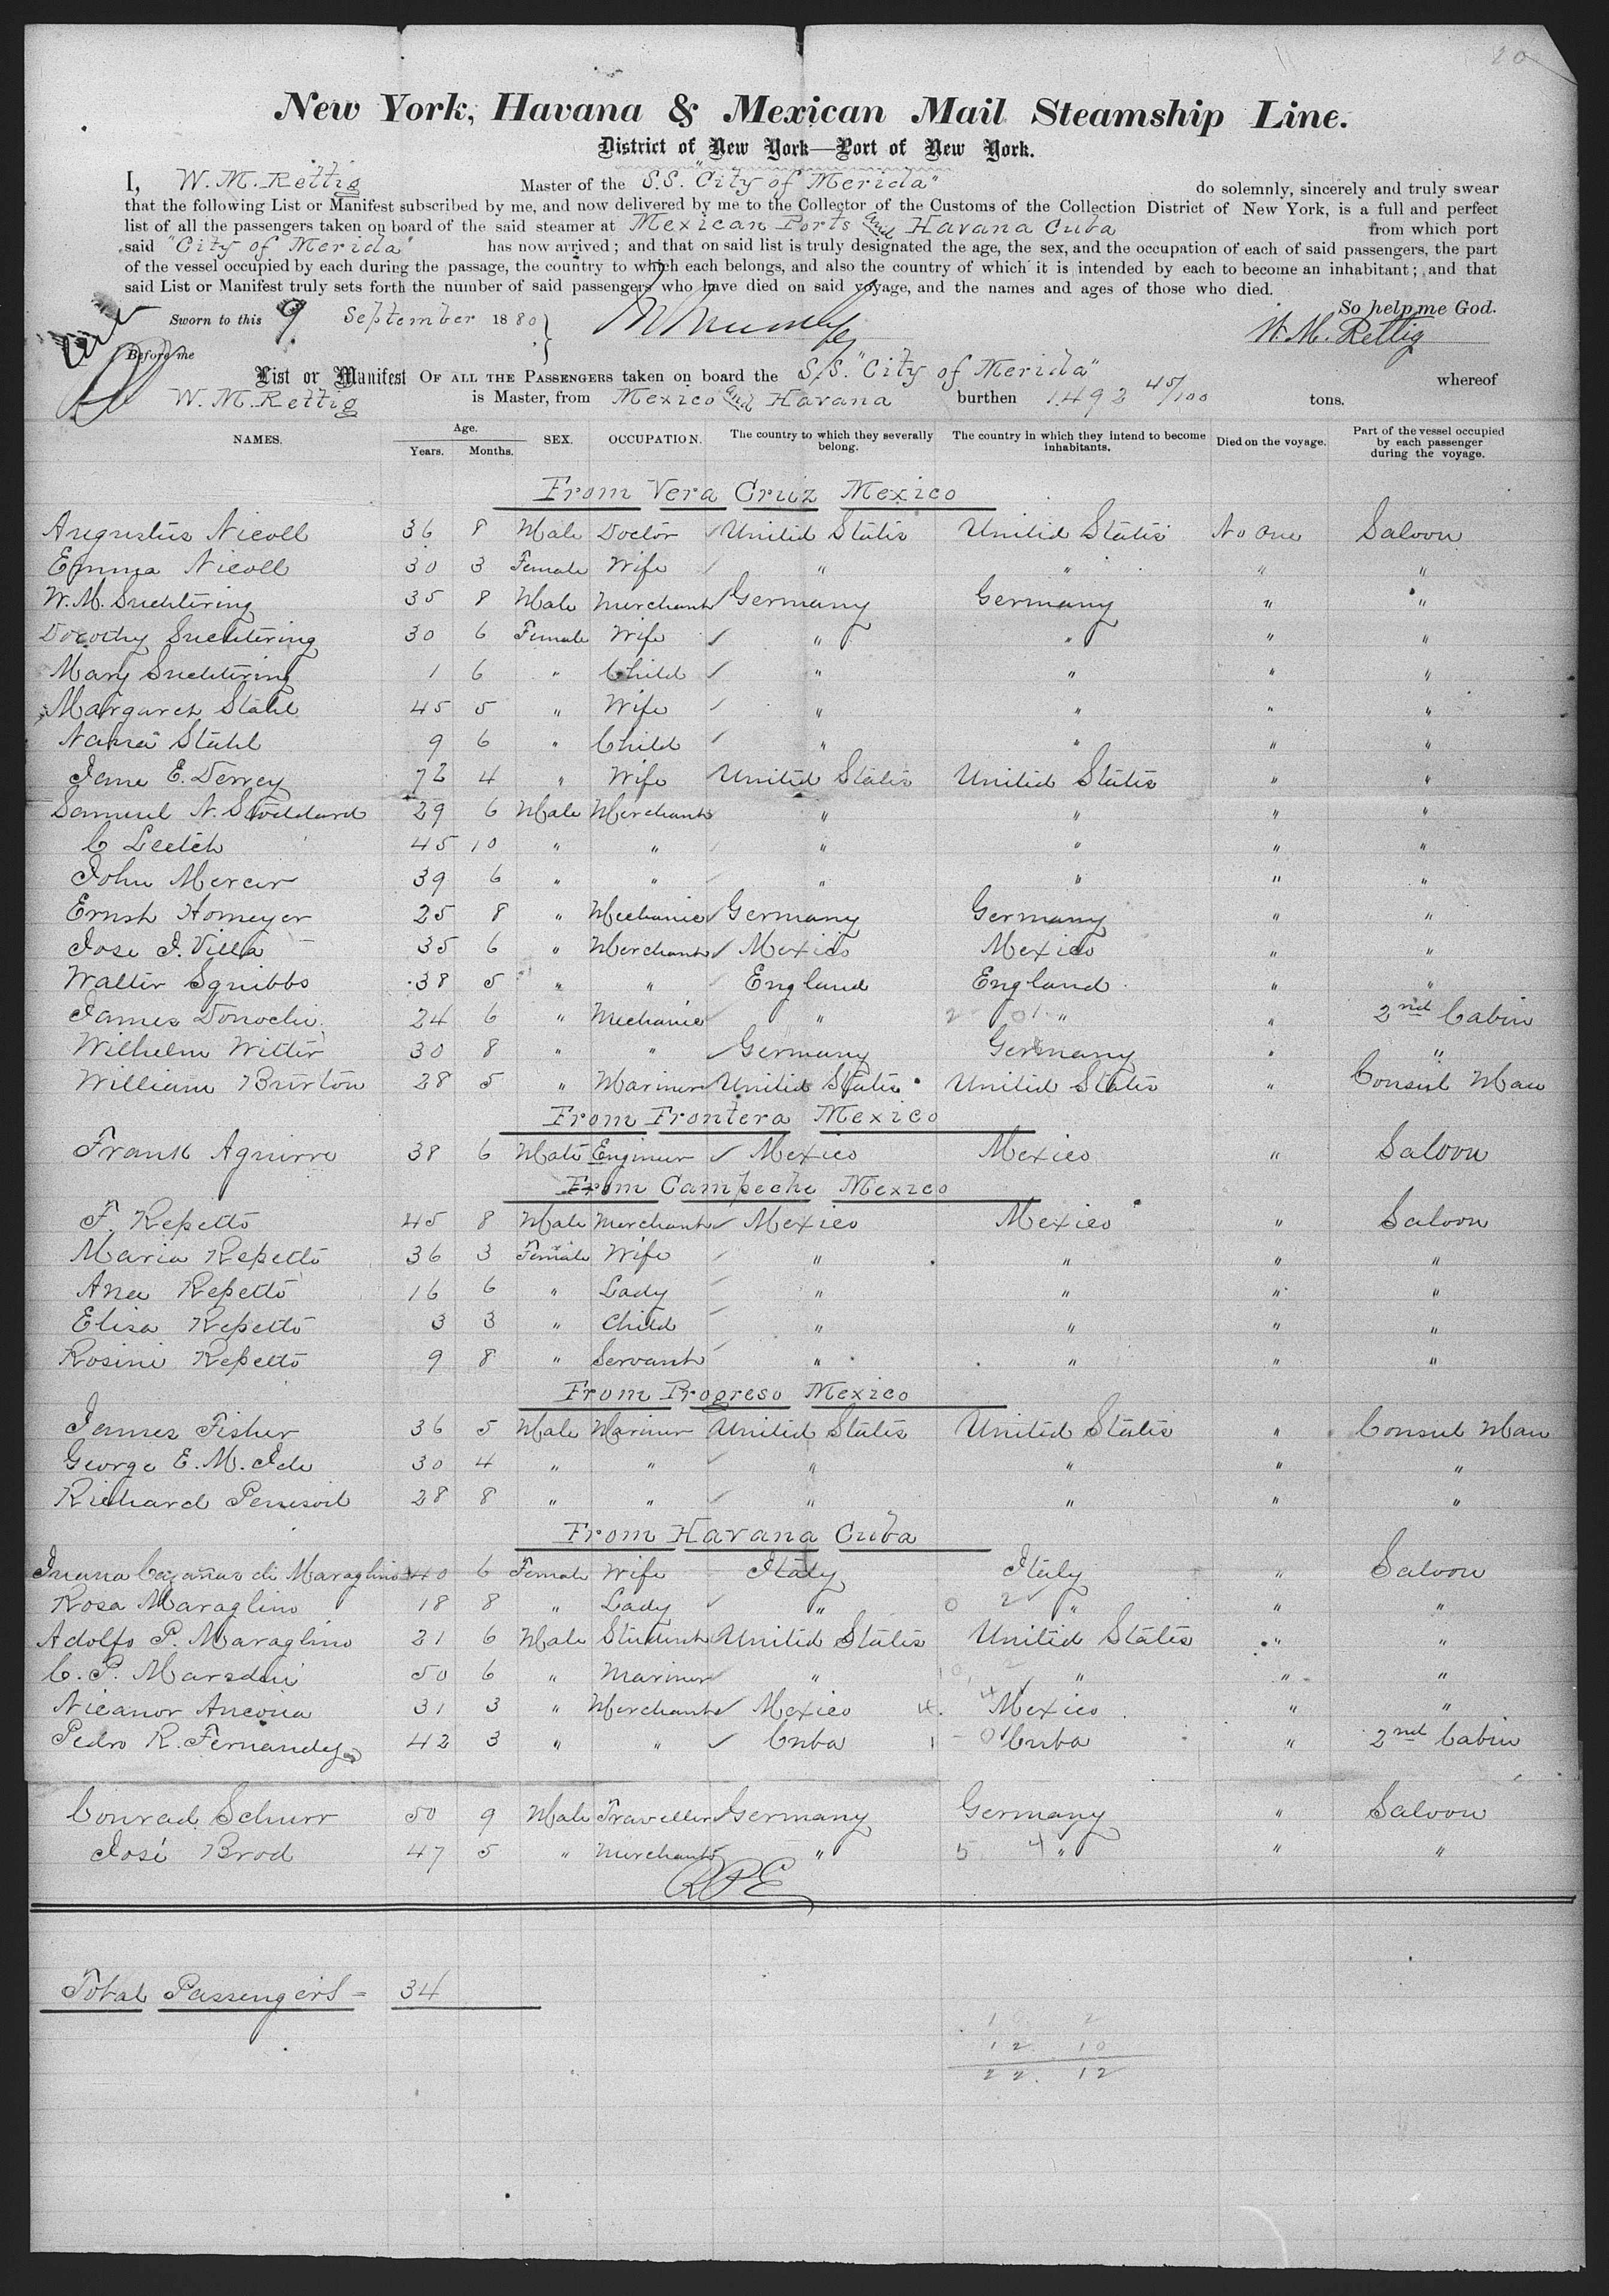 20
New York, Havana & Mexican Mail Steamship Line.
District of New York—Port of New York.
I, W. M. Rettig Master of the S.S. "City of Merida" do solemnly, sincerely and truly swear
that the following List or Manifest subscribed by me, and now delivered by me to the Collector of the Customs of the Collection District of New York, is a full and perfect
list of all the passengers taken on board of the said steamer at Mexican Ports and Havana Cuba from which port
said "City of Merida" has now arrived; and that on said list is truly designated the age, the sex, and the occupation of each of said passengers, the part
of the vessel occupied by each during the passage, the country to which each belongs, and also the country of which it is intended by each to become an inhabitant; and that
said List or Manifest truly sets forth the number of said passengers who have died on said voyage, and the names and ages of those who died.
So help me God.
Sworn to this 9 September 1880
W. M. Rettig
Before me
List or Manifest OF ALL THE PASSENGERS taken on board the S/S. "City of Merida" whereof
W. M. Rettig is Master, from Mexico and Havana burthen 1492 45/100 tons.
NAMES. Age. Years. Months. SEX. OCCUPATION. The country to which they severally belong. The country in which they intend to become inhabitants. Died on the voyage. Part of the vessel occupied by each passenger during the voyage.
From Vera Cruz Mexico
Augustus Nicoll 36 8 Male Doctor United States United States No one Saloon
Emma Nicoll 30 3 Female Wife " " " "
W. M. Suchtering 35 8 Male Merchant Germany Germany " "
Dorothy Suchtering 30 6 Female Wife " " " "
Mary Suchtering 1 6 " Child " " " "
Margaret Stahl 45 5 " Wife " " " "
Nana Stahl 9 6 " Child " " " "
Jane E. Dervey 72 4 " Wife United States United States " "
Samuel N. Stoddard 29 6 Male Merchant " " " "
C Leetch 45 10 " " " " " "
John Mercer 39 6 " " " " " "
Ernst Homeyer 25 8 " Mechanic Germany Germany " "
Jose J. Villa 35 6 " Merchant Mexico Mexico " "
Walter Squibbs 38 5 " " England England " "
James Donochi 24 6 " Mechanic " " " 2nd Cabin
Wilhelm Witter 30 8 " " Germany Germany " "
William Burton 28 5 " Mariner United States United States " Consul Man
From Frontera Mexico
Frank Aguirre 38 6 Male Engineer Mexico Mexico " Saloon
From Campeche Mexico
F. Repetto 45 8 Male Merchant Mexico Mexico " Saloon
Maria Repetto 36 3 Female Wife " " " "
Ana Repetto 16 6 " Lady " " " "
Elisa Repetto 3 3 " Child " " " "
Rosini Repetto 9 8 " Servant " " " "
From Progreso Mexico
James Fisher 36 5 Male Mariner United States United States " Consul Man
George E. M. Ide 30 4 " " " " " "
Richard 28 8 " " " " " "
From Havana Cuba
Juana Cazañas di Maraglino 40 6 Female Wife Italy Italy " Saloon
Rosa Maraglino 18 8 " Lady " " " "
Adolfo P. Maraglino 21 6 Male Student United States United States " "
C. P. Marsden 50 6 " Mariner " " " "
Nicanor Ancona 31 3 " Merchant Mexico Mexico " "
Pedro R. Fernandez 42 3 " " Cuba Cuba " 2nd Cabin
Conrad Schurr 50 9 Male Traveller Germany Germany " Saloon
José Brod 47 5 " Merchant " 5 4 " " "
Total Passengers = 34
10 2
12 10
22. 12